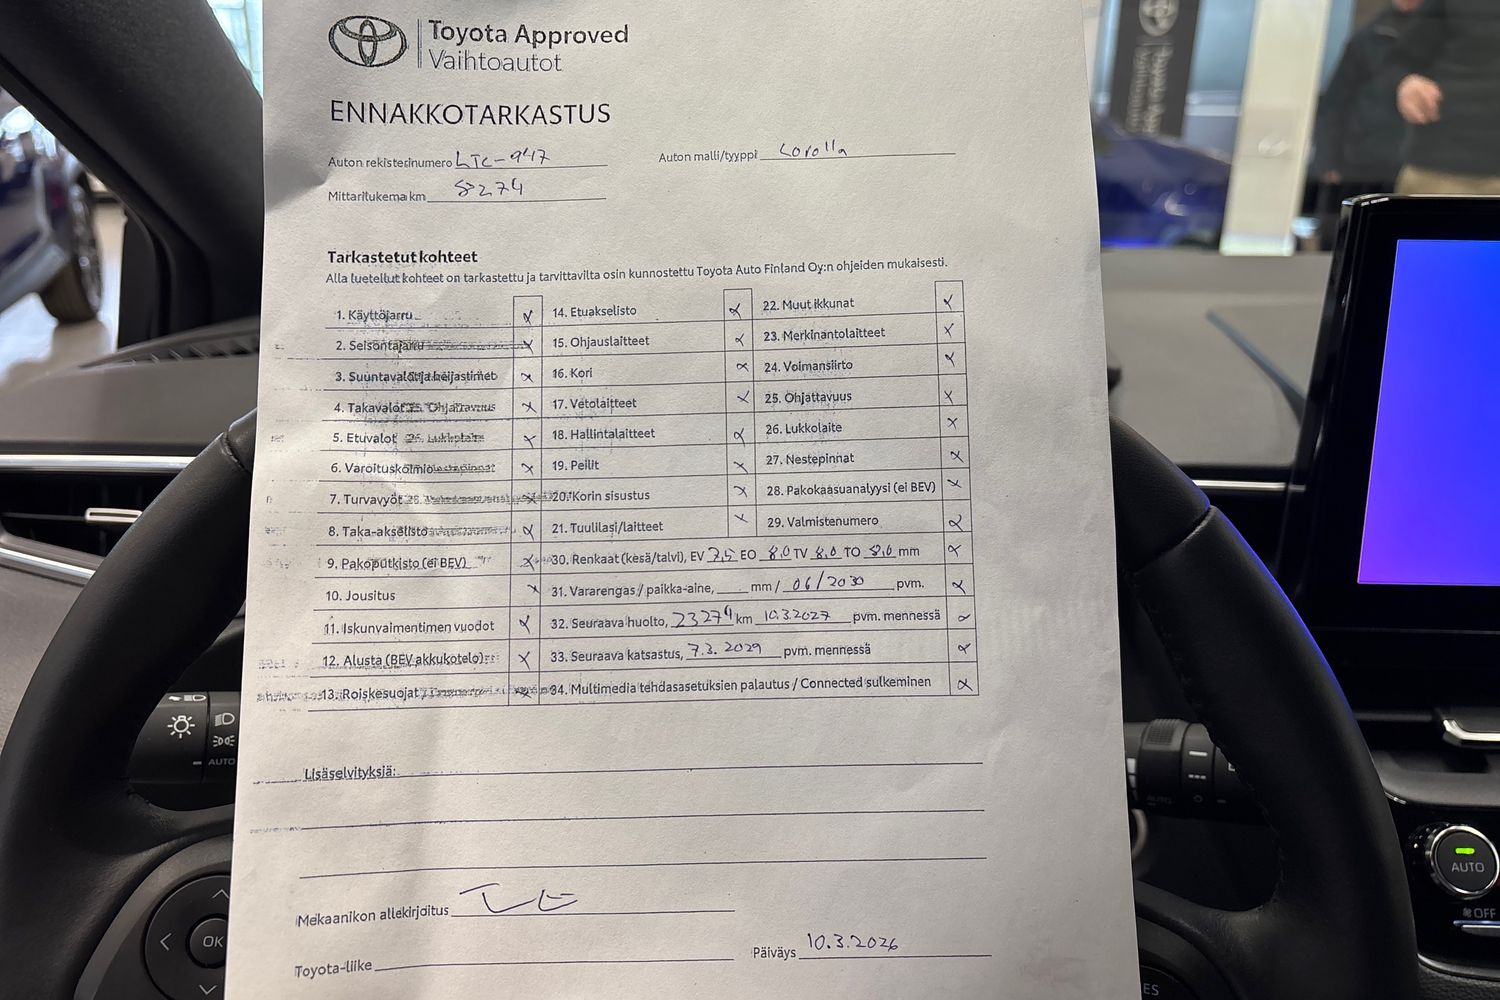 Toyota Approved
Vaihtoautot
ENNAKKOTARKASTUS
Auton rekisterinumero LTC-947 Auton malli/tyyppi Corolla
Mittarilukema km 8274
Tarkastetut kohteet
Alla luetellut kohteet on tarkastettu ja tarvittavilta osin kunnostettu Toyota Auto Finland Oy:n ohjeiden mukaisesti.
1. Käyttöjarru
2. Seisontajarru
3. Suuntavalot ja heijastimet
4. Takavalot
5. Etuvalot
6. Varoituskolmio
7. Turvavyöt
8. Taka-akselisto
9. Pakoputkisto (ei BEV)
10. Jousitus
11. Iskunvaimentimen vuodot
12. Alusta (BEV akkukotelo)
13. Roiskesuojat
14. Etuakselisto
15. Ohjauslaitteet
16. Kori
17. Vetolaitteet
18. Hallintalaitteet
19. Peilit
20. Korin sisustus
21. Tuulilasi/laitteet
22. Muut ikkunat
23. Merkinantolaitteet
24. Voimansiirto
25. Ohjattavuus
26. Lukkolaite
27. Nestepinnat
28. Pakokaasuanalyysi (ei BEV)
29. Valmistenumero
30. Renkaat (kesä/talvi), EV 7,5 EO 8,0 TV 8,0 TO 8,0 mm
31. Vararengas / paikka-aine, mm / 06/2030 pvm.
32. Seuraava huolto, 23274 km 10.3.2027 pvm. mennessä
33. Seuraava katsastus, 7.3.2029 pvm. mennessä
34. Multimedia tehdasasetuksien palautus / Connected sulkeminen
Lisäselvityksiä:
Mekaanikon allekirjoitus
Toyota-liike
Päiväys 10.3.2026
AUTO
OK
AUTO
OFF